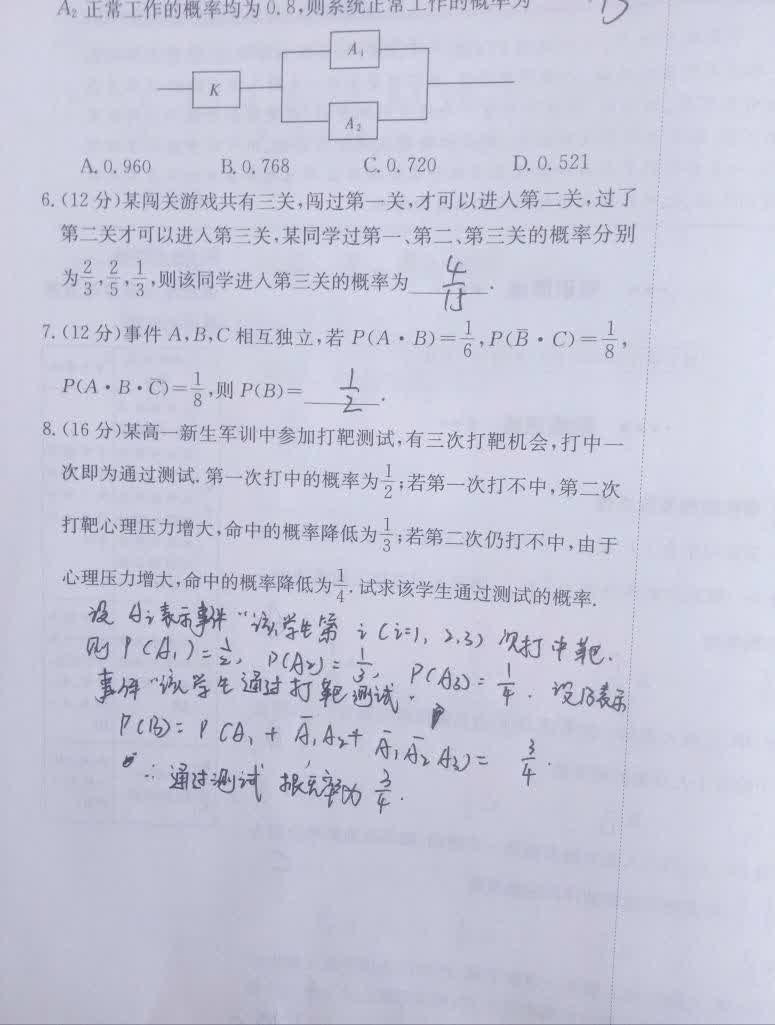 A₂ 正常工作的概率均为 0.8,则系统正常工作的概率为 B
K
A₁
A₂
A. 0.960 B. 0.768 C. 0.720 D. 0.521
6. (12 分)某闯关游戏共有三关,闯过第一关,才可以进入第二关,过了
第二关才可以进入第三关,某同学过第一、第二、第三关的概率分别
为2/3,2/5,1/3,则该同学进入第三关的概率为 4/15 .
7. (12 分)事件 A,B,C 相互独立,若 P(A・B)=1/6,P(B̄・C)=1/8,
P(A・B・C̄)=1/8,则 P(B)= 1/2 .
8. (16 分)某高一新生军训中参加打靶测试,有三次打靶机会,打中一
次即为通过测试. 第一次打中的概率为1/2;若第一次打不中,第二次
打靶心理压力增大,命中的概率降低为1/3;若第二次仍打不中,由于
心理压力增大,命中的概率降低为1/4. 试求该学生通过测试的概率.
设 Ai表示事件“该学生第 i (i=1, 2,3) 次打中靶.
则 P(A₁)=1/2, P(A₂)=1/3, P(A₃)=1/4. 设B表示
事件“该学生通过打靶测试.
P(B)= P(A₁ + Ā₁A₂+ Ā₁Ā₂A₃)= 3/4.
∴ 通过测试概率为 3/4.